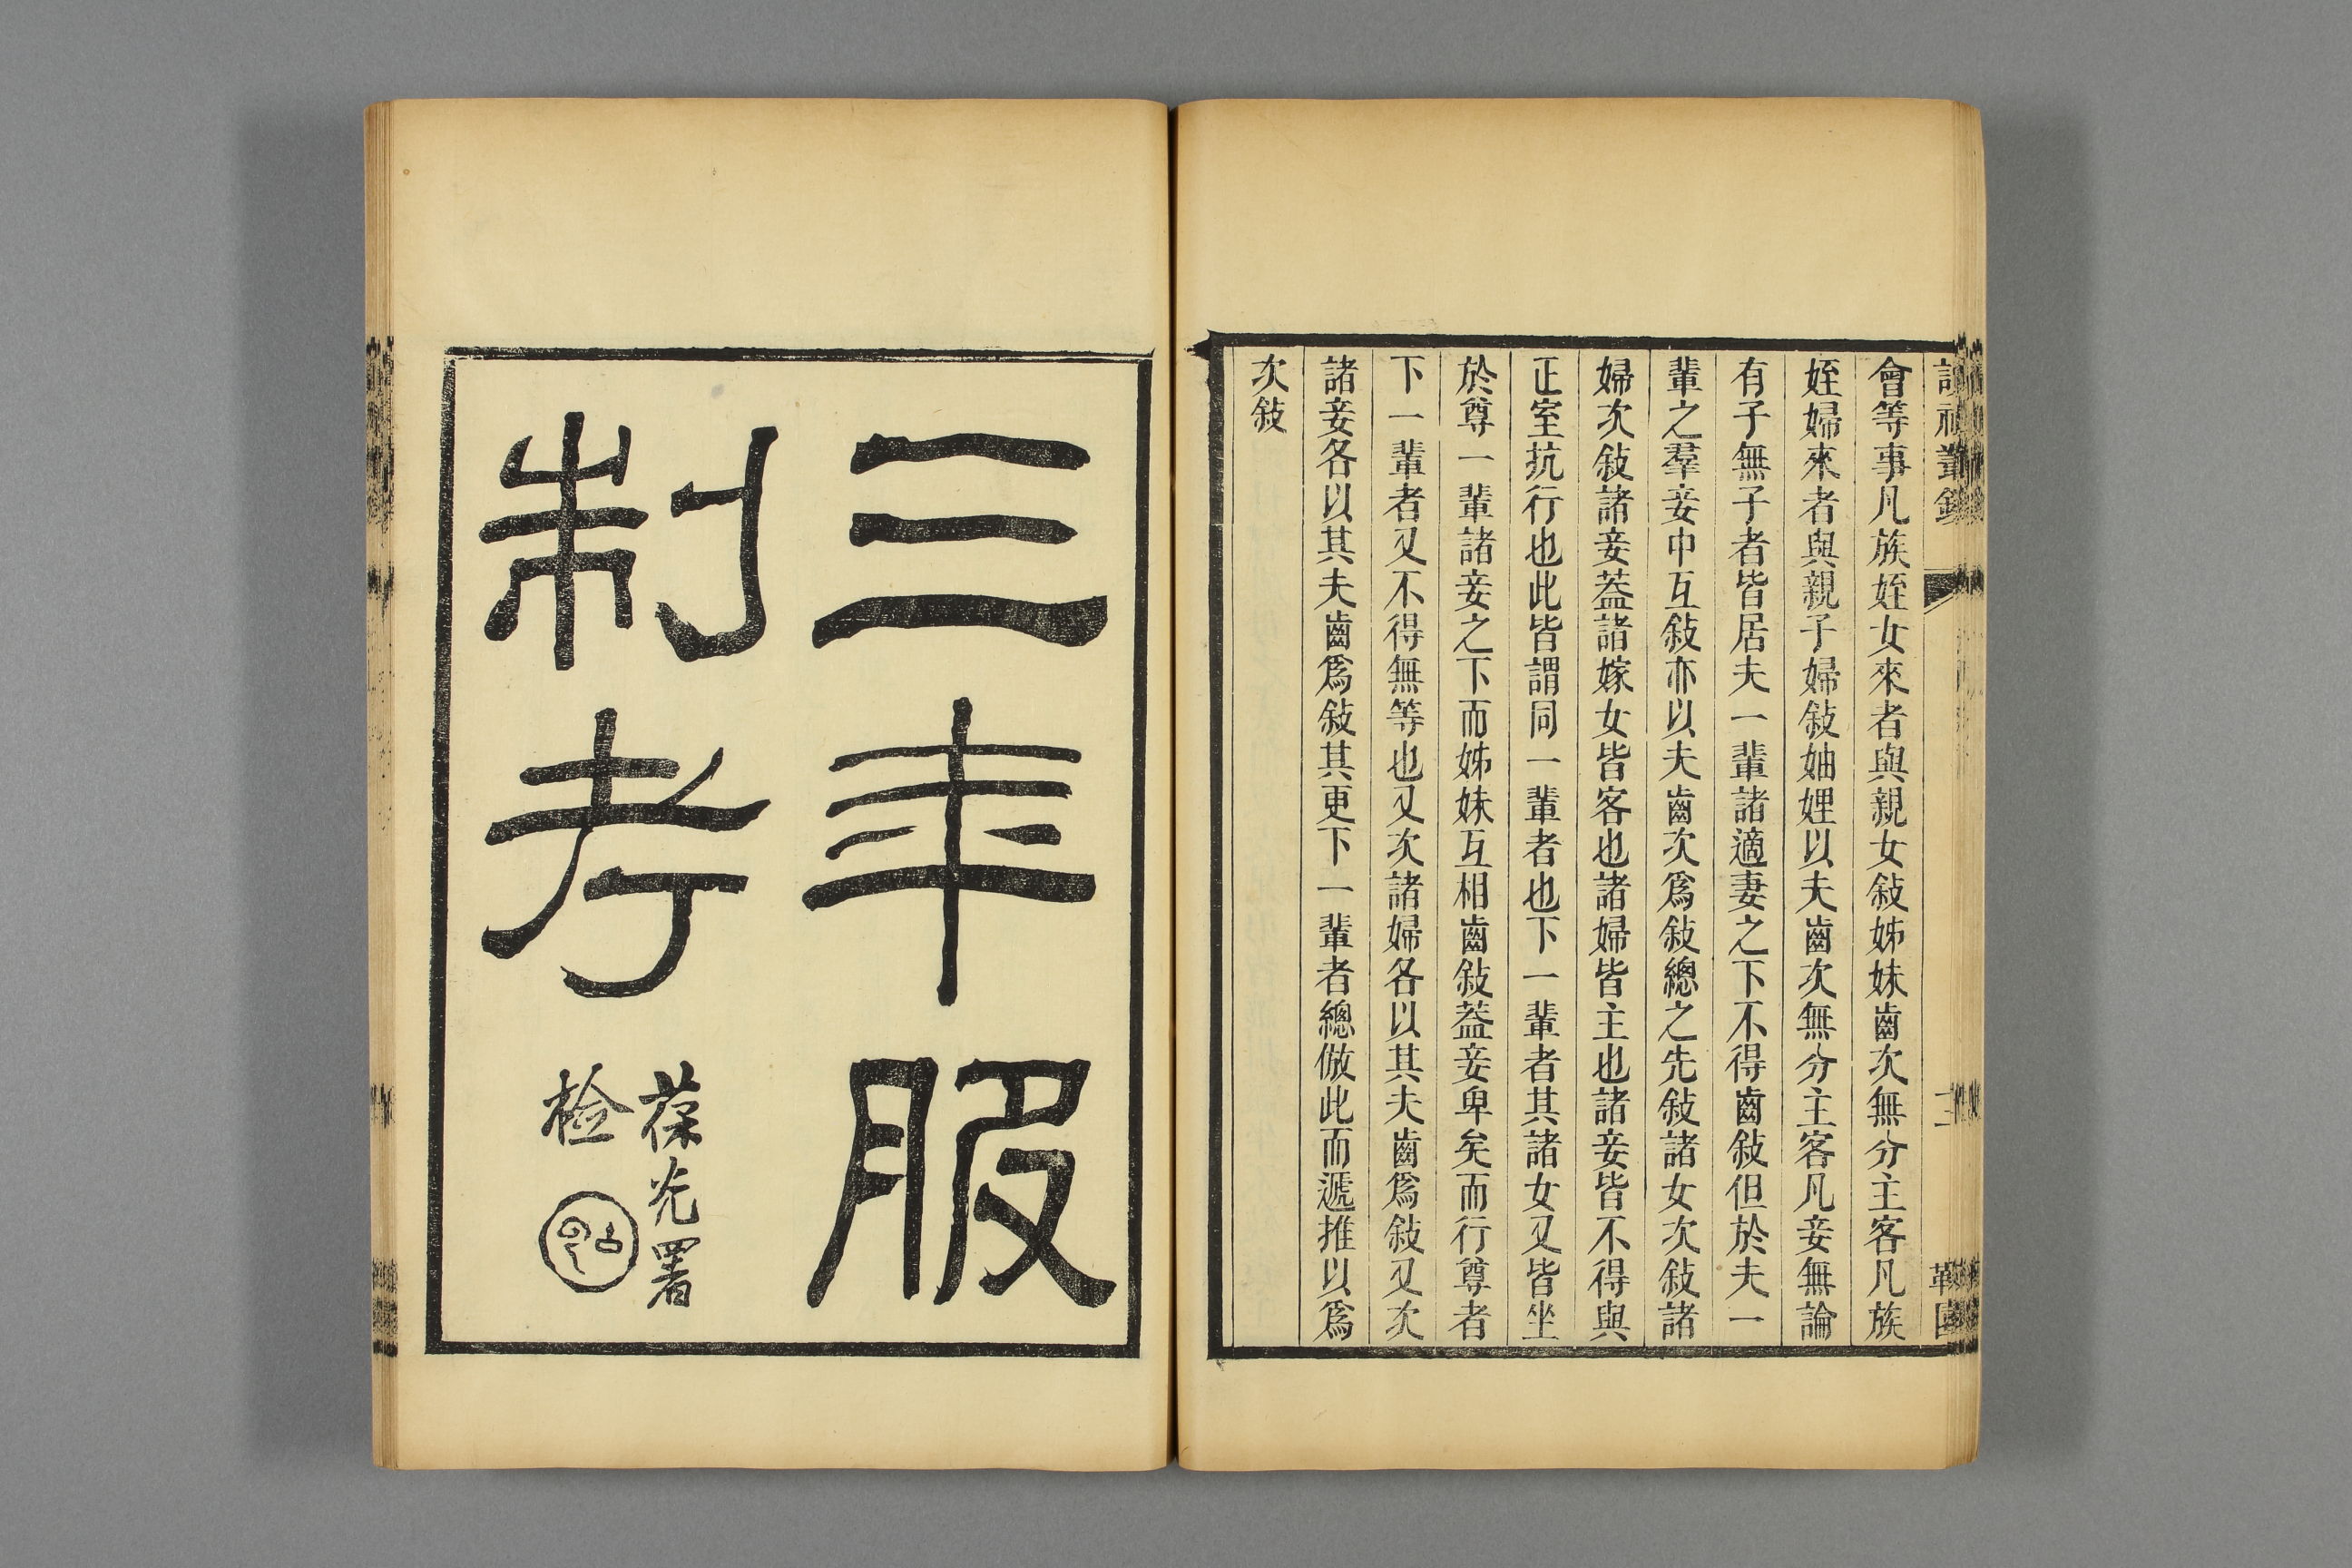 會等事凡族姪女來者與親女敍姊妹齒次無分主客凡族
姪婦來者與親子婦敍妯娌以夫齒次無分主客凡妾無論
有子無子者皆居夫一輩諸適妻之下不得齒敍但於夫一
輩之羣妾中互敍亦以夫齒次爲敍總之先敍諸女次敍諸
婦次敍諸妾葢諸嫁女皆客也諸婦皆主也諸妾皆不得與
正室抗行也此皆謂同一輩者也下一輩者其諸女又皆坐
於尊一輩諸妾之下而姊妹互相齒敍葢妾卑矣而行尊者
下一輩者又不得無等也又次諸婦各以其夫齒爲敍又次
諸妾各以其夫齒爲敍其更下一輩者總倣此而遞推以爲
次敍
三年服
制考
葆光署
检